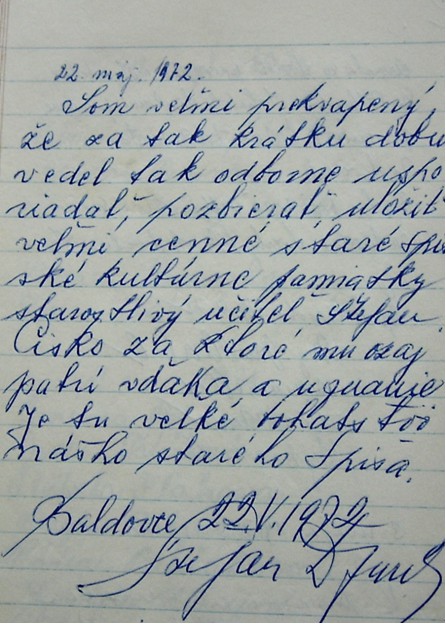 22. máj. 1972.
Som veľmi prekvapený,
že za tak krátku dobu
vedel tak odborne uspo
riadať, pozbierať, uložiť
veľmi, cenné staré spiš
ské kultúrne pamiatky
starostlivý učiteľ Štefan
Cisko za ktoré mu ozaj
patrí vďaka, a uznanie
Je tu veľké bohatstvo
nášho starého Spiša.
Baldovce 22.V.1972
Štefan